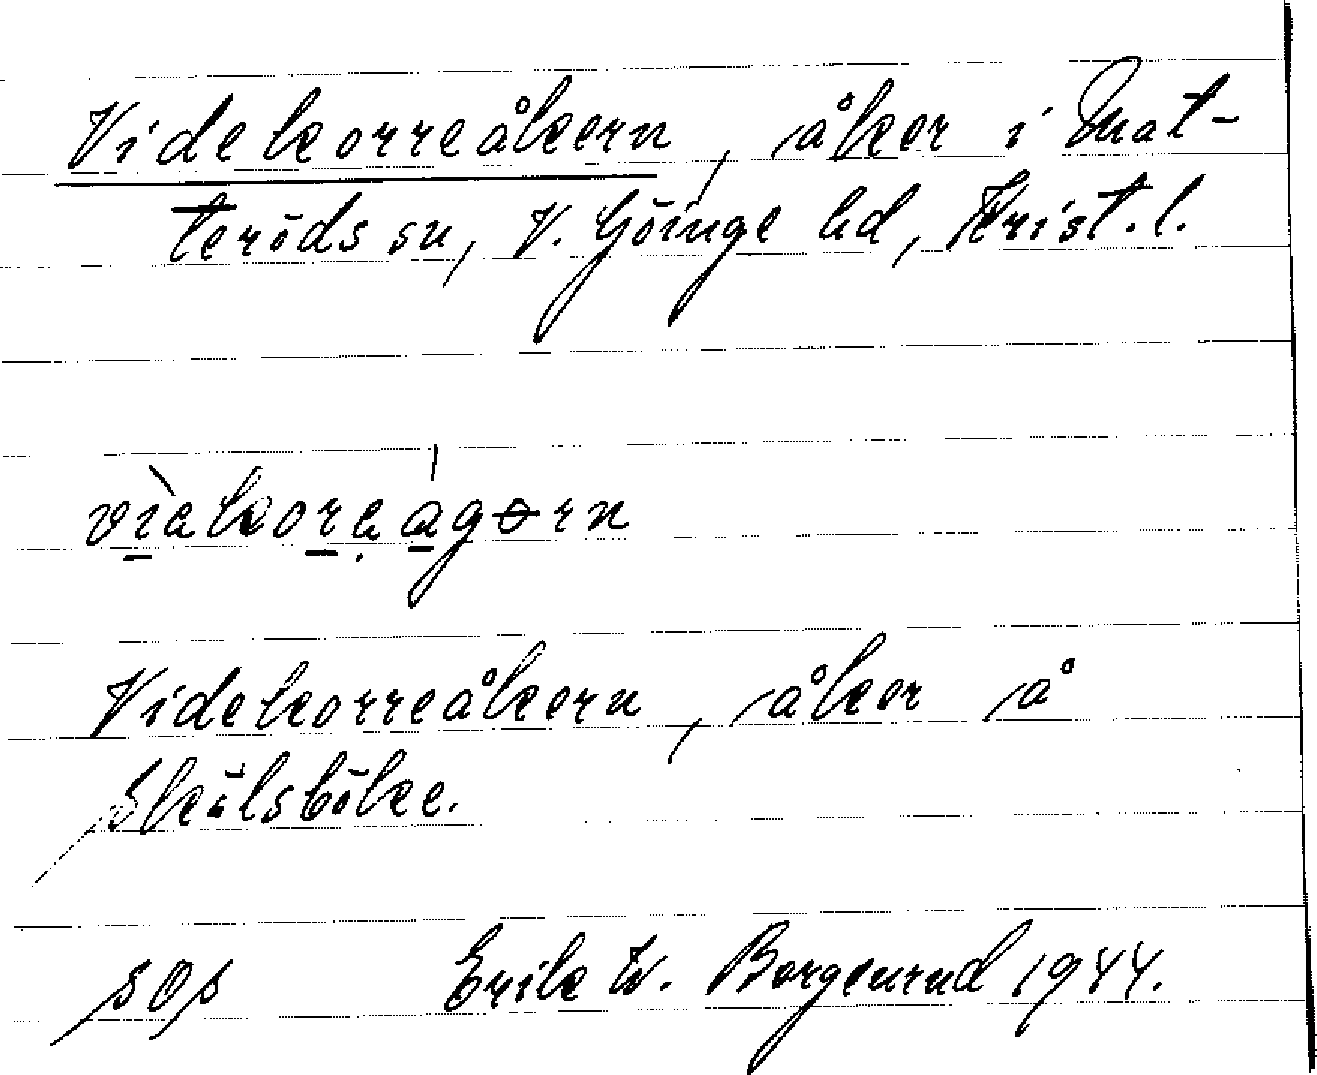 Videkorreåkern, åker i Mat-
teröds sn, V. Göinge hd, Krist. l.
Videkorreåkern, åker å
Skülsböke.
sOs Erik W. Borgenrud 1944.